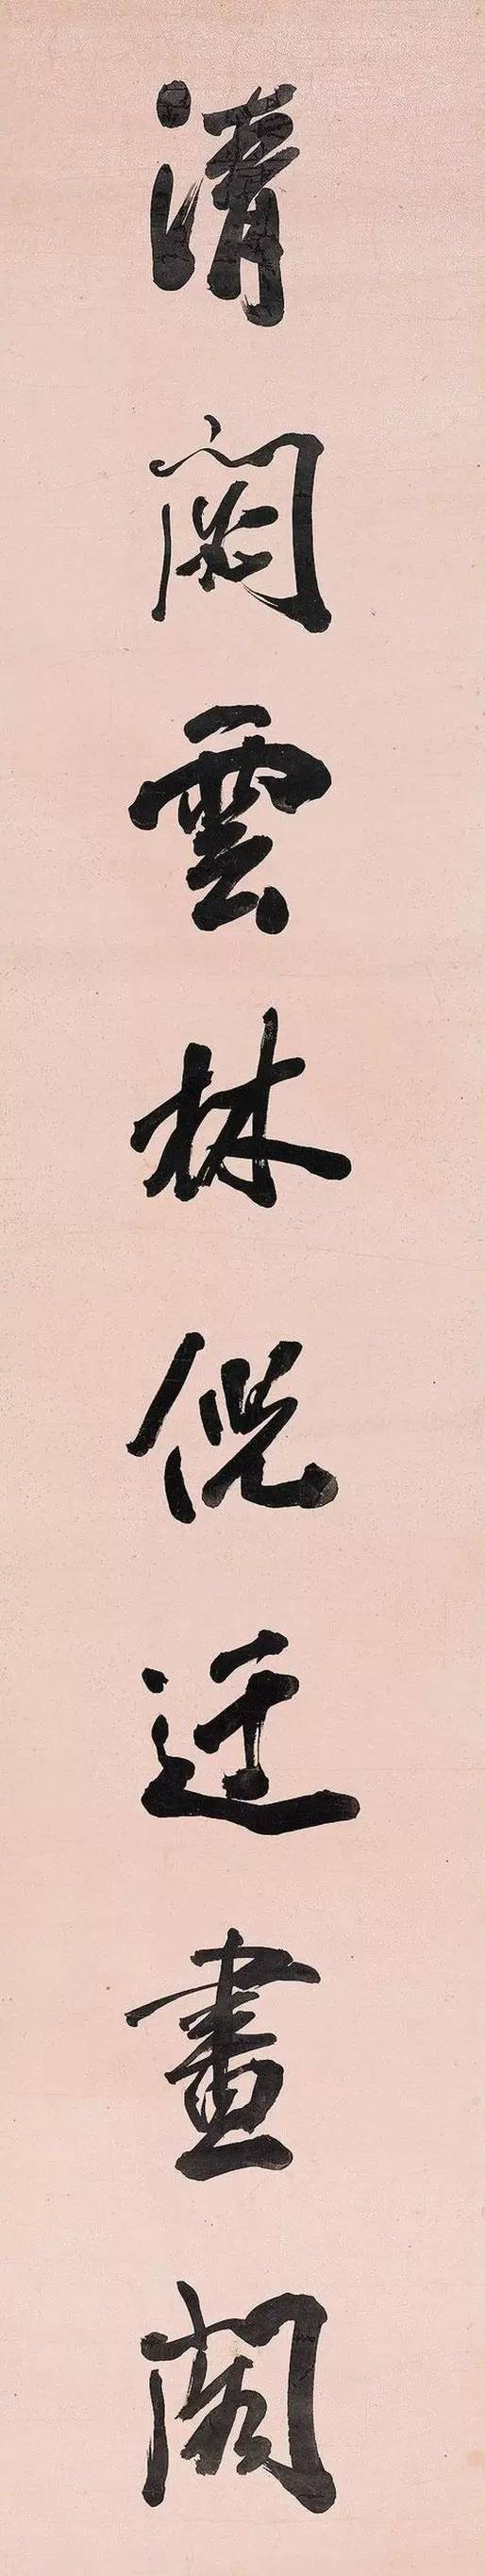 清閟雲林倪迂畫閣